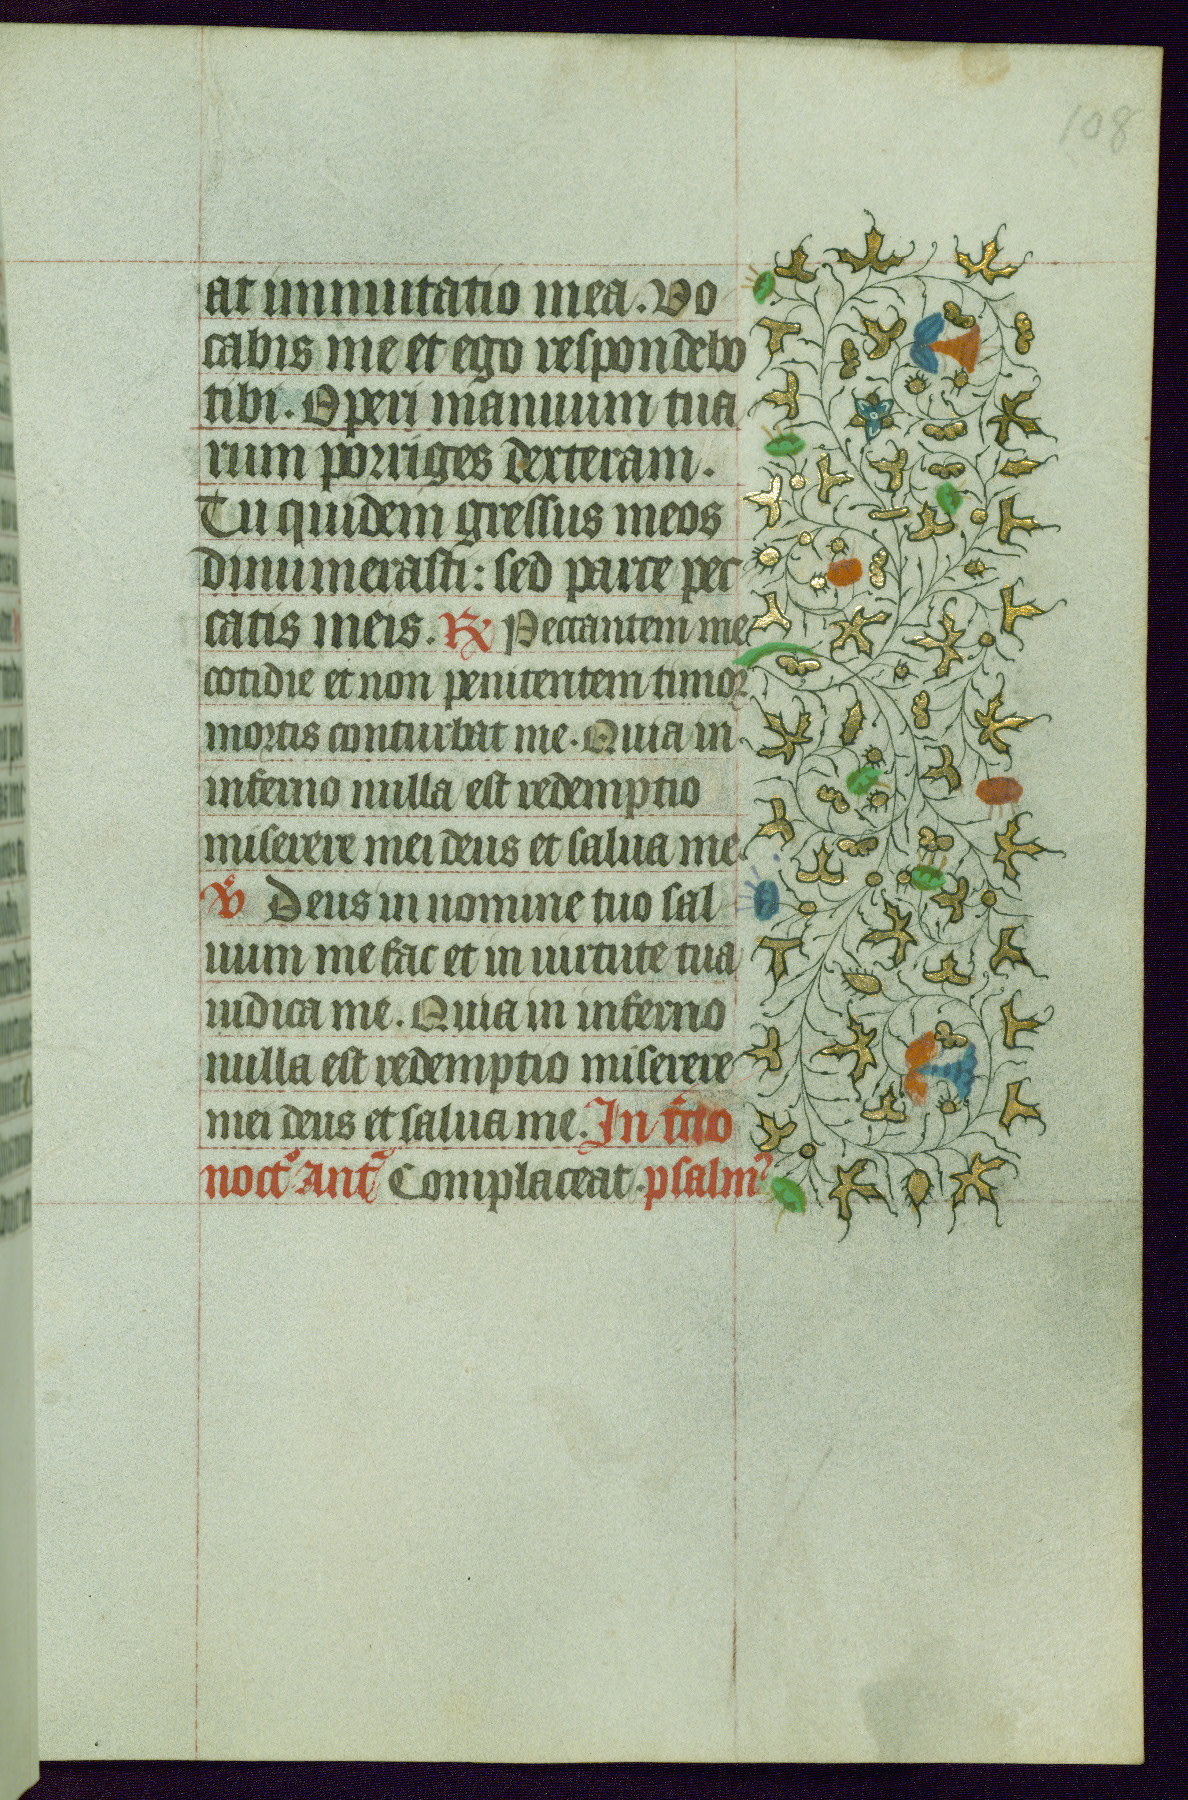 108
at inmutatio mea. Vo
cabis me et ego respondebo
tibi. Operi manuum tua
rum porriges dexteram.
Tu quidem gressus meos
dinumerasti: sed parce pec
catis meis. R̸ Peccantem me
cotidie et non penitentem timor
mortis conturbat me. Quia in
inferno nulla est redemptio
miserere mei deus et salua me.
V̊ Deus in nomine tuo sal
uum me fac et in uirtute tua
iudica me. Quia in inferno
nulla est redemptio miserere
mei deus et salua me. In t̄cio
noct᷒ Ant᷑ Complaceat. psalm᷒